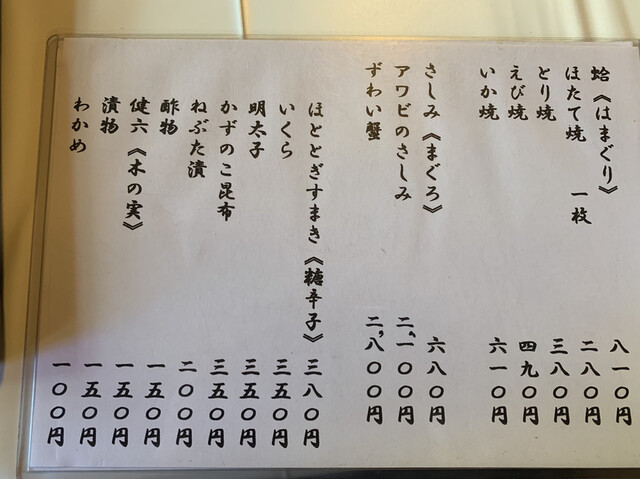 蛤《はまぐり》 八一〇円
ほたて焼 一枚 二八〇円
とり焼 三八〇円
えび焼 四九〇円
いか焼 六一〇円
さしみ《まぐろ》 六八〇円
アワビのさしみ 二、一〇〇円
ずわい蟹 二、八〇〇円
ほととぎすまき《糖辛子》 三八〇円
いくら 三五〇円
明太子 三五〇円
かずのこ昆布 三五〇円
ねぶた漬 二〇〇円
酢物 一五〇円
健六《木の実》 一五〇円
漬物 一五〇円
わかめ 一〇〇円